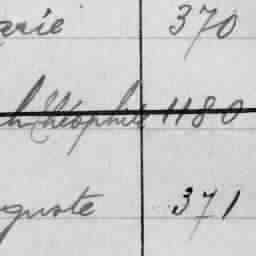 arie 370
h Théophile 1180
guste 371